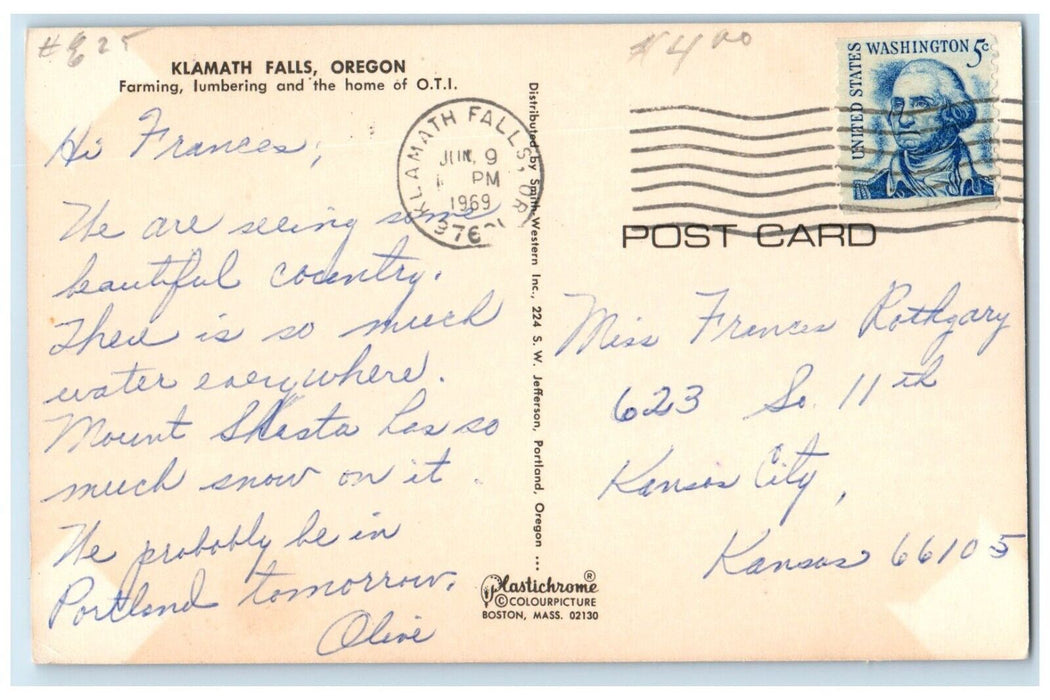 KLAMATH FALLS, OREGON
Farming, lumbering and the home of O.T.I.
Hi Frances,
We are seeing some
beautiful country.
There is so much
water everywhere.
Mount Shasta has so
much snow on it.
We probably be in
Portland tomorrow.
Olive
KLAMATH FALLS, OR
JUN 9
PM
1969
Distributed by Smith-Western Inc., 224 S. W. Jefferson, Portland, Oregon ...
Plastichrome ®
© COLOURPICTURE
BOSTON, MASS. 02130
$4.00
UNITED STATES
WASHINGTON 5c
POST CARD
Miss Frances Rothgary
623 So. 11th
Kansas City,
Kansas 66105